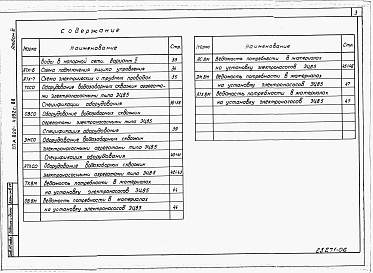 3
Содержание
Марка Наименование Стр.
воды в напорной сети. Вариант 2 33
АТХ-6 Схема подключения ящика управления 34
АТХ-7 Схема электрических и трубных проводок 35
ТХСО Оборудование водозаборных скважин агрегатами
электронасосными типа ЭЦВ5
Спецификации оборудования
ОВСО Оборудование водозаборных скважин
агрегатами электронасосными типа ЭЦВ5
Спецификация оборудования 39
ЭМСО Оборудование водозаборных скважин
электронасосными агрегатами типа ЭЦВ5
Спецификация оборудования
АТХСО Оборудование водозаборных скважин
электронасосными агрегатами типа ЭЦВ5
ТХВМ Ведомость потребности в материалах
на установку электронасосов ЭЦВ5 44
ОВВМ Ведомость потребности в материалах
на установку электронасосов ЭЦВ5
Марка Наименование Стр.
АСВМ Ведомость потребности в материалах
на установку электронасосов ЭЦВ5
ЭМВМ Ведомость потребности в материалах
на установку электронасосов ЭЦВ5 47
АТХВМ Ведомость потребности в материалах
на установку электронасосов ЭЦВ5 47
23271-06